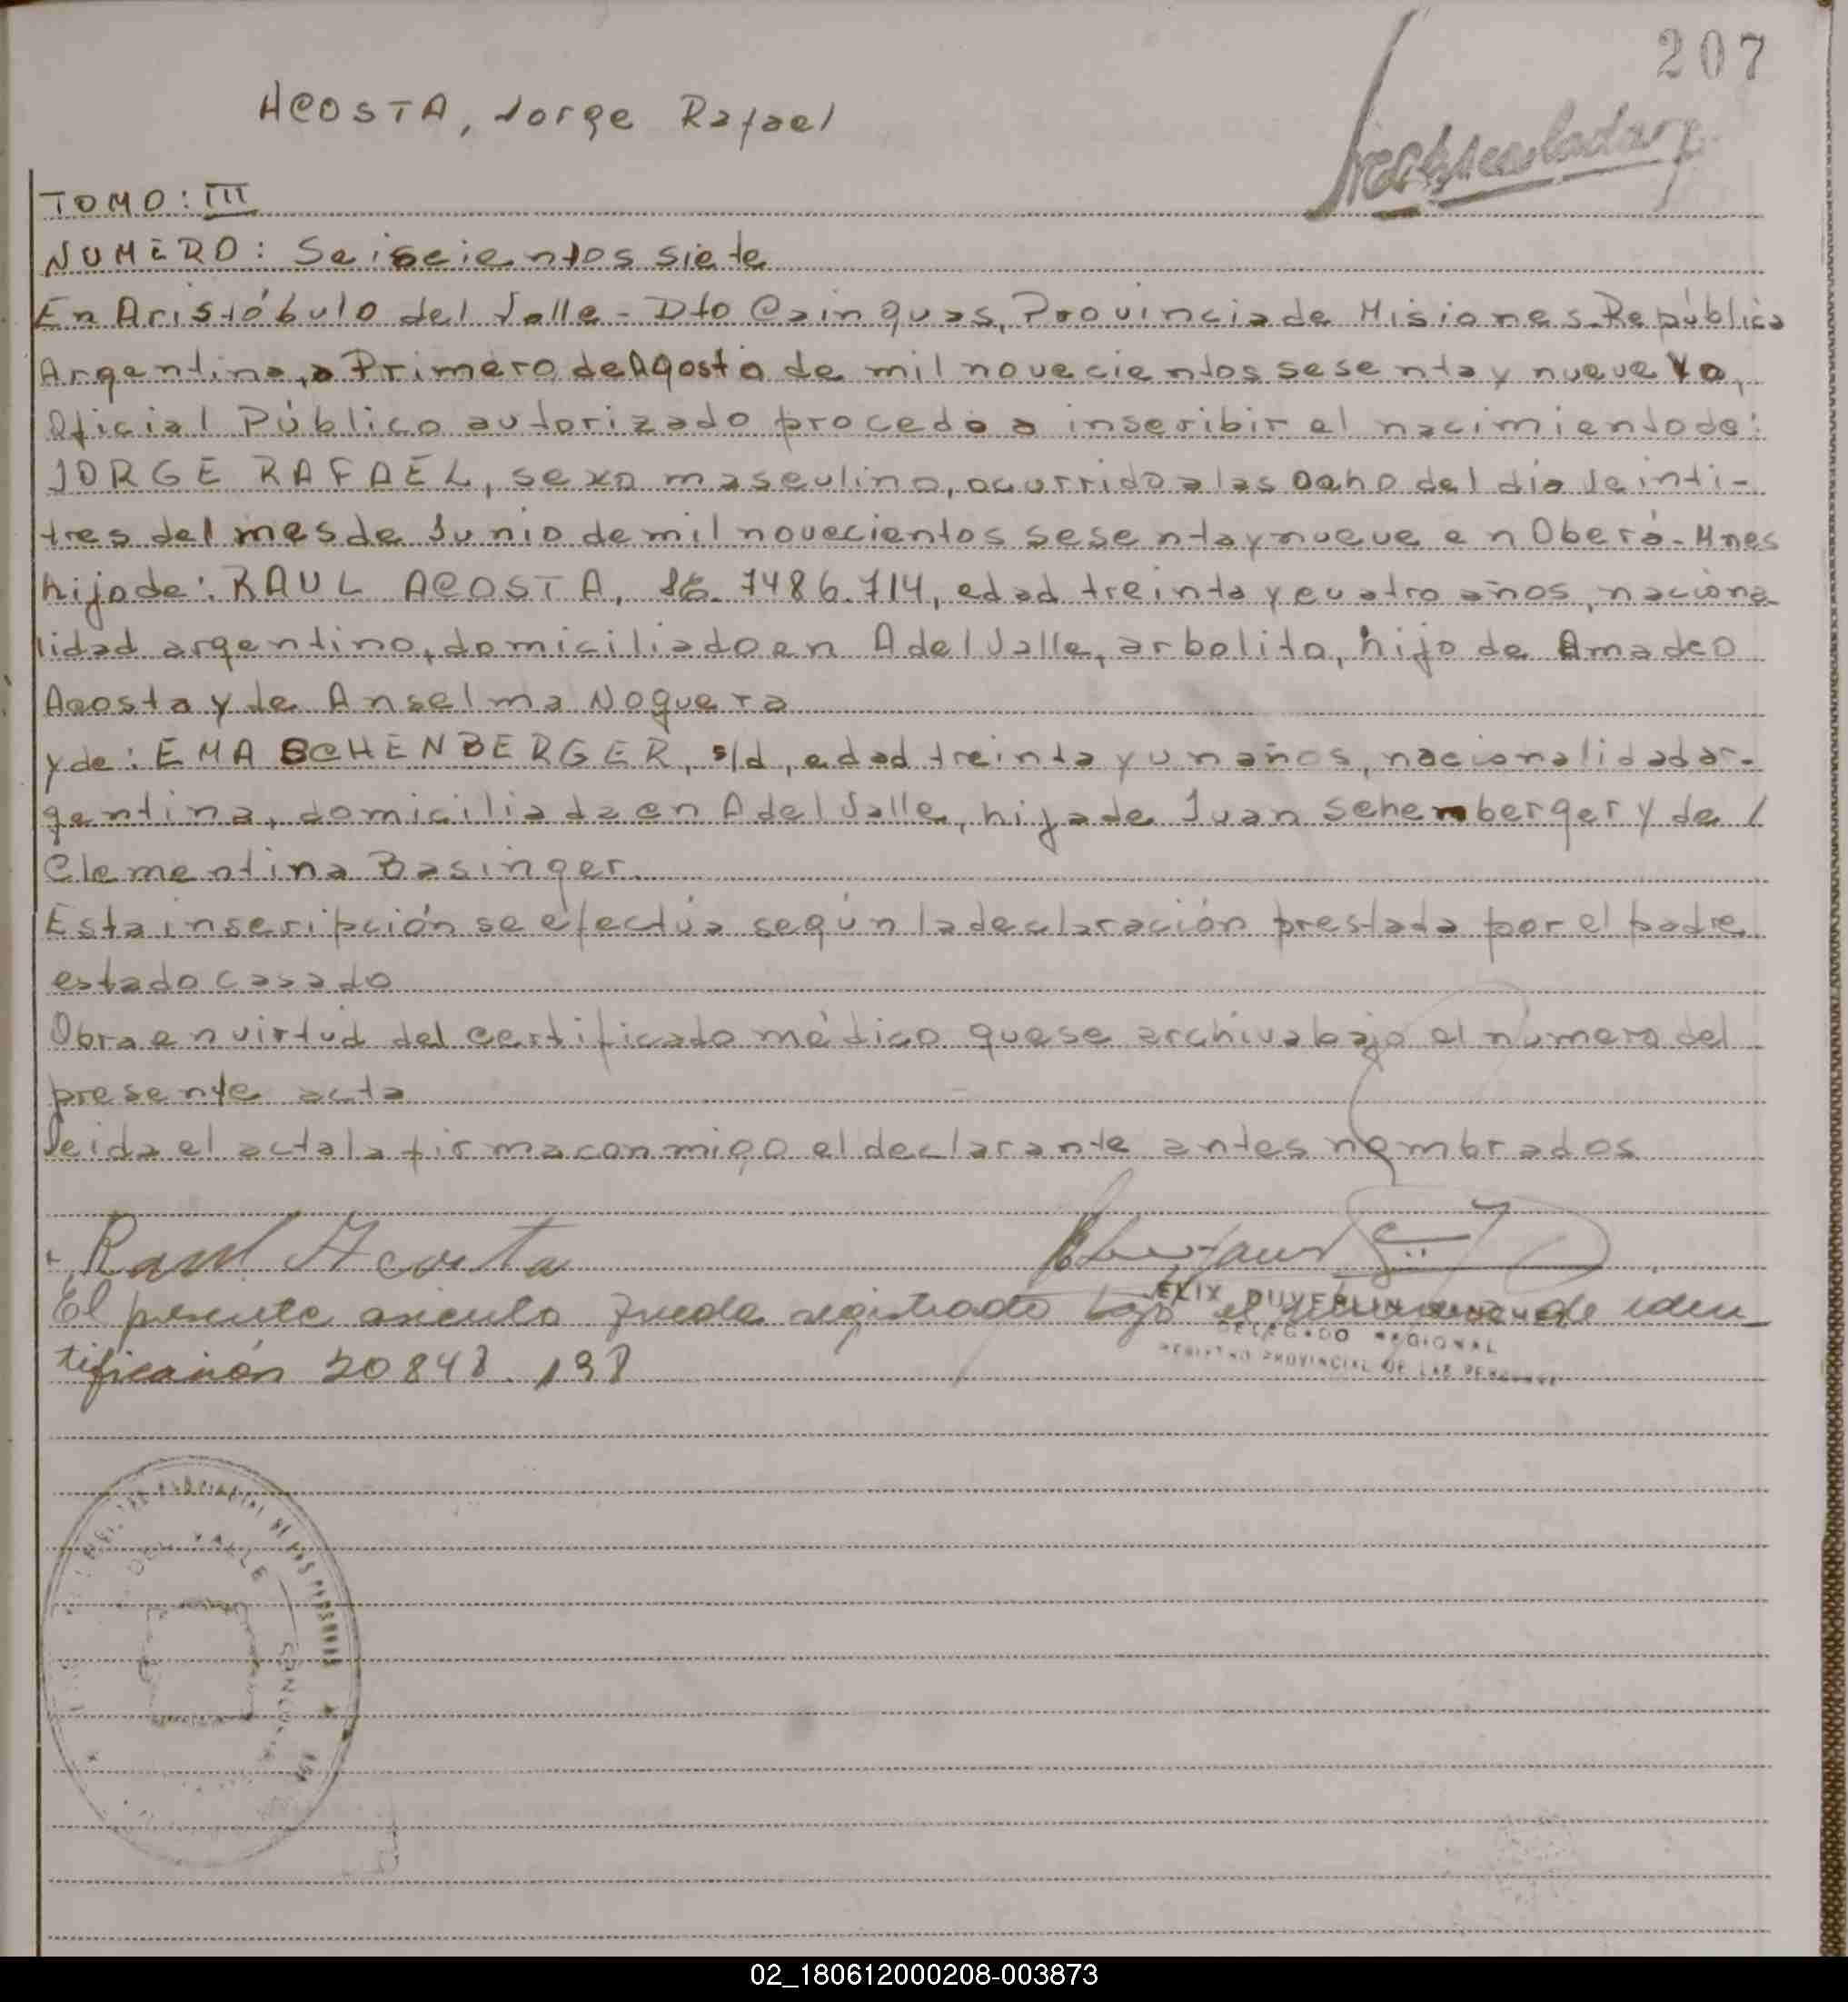 207
ACOSTA, Jorge Rafael
TOMO: III
NUMERO: Seiscientos siete
En Aristóbulo del Valle - Dto Cainguas, Provincia de Misiones República
Argentina, a Primero de Agosto de mil novecientos sesenta y nueve Yo,
Oficial Público autorizado procedo a inscribir el nacimiento de:
JORGE RAFAEL, sexo masculino, ocurrido a las ocho del día Veinti-
tres del mes de Junio de mil novecientos sesenta y nueve en Oberá - Mnes
hijo de: RAUL ACOSTA, 7486.714, edad treinta y cuatro años, naciona
lidad argentino, domiciliado en A del Valle, arbolito, hijo de Amadeo
Acosta y de Anselma Noguera
y de: EMA SCHENBERGER, s/d, edad treinta y un años, nacionalidad ar-
gentina, domiciliada en A del Valle, hija de Juan Schemberger y de /
Clementina Basinger.
Esta inscripción se efectúa según la declaración prestada por el padre
estado casado
Obra en virtud del certificado médico que se archiva bajo el número del
presente acta
leida el acta la firma conmigo el declarante antes nombrados
Raul Acosta
FELIX DUVERLIN
DELEGADO REGIONAL
REGISTRO PROVINCIAL DE LAS PERSONAS
El presente asiento queda registrado bajo el número de iden
tificación 20848.198
DEL VALLE
02_180612000208-003873